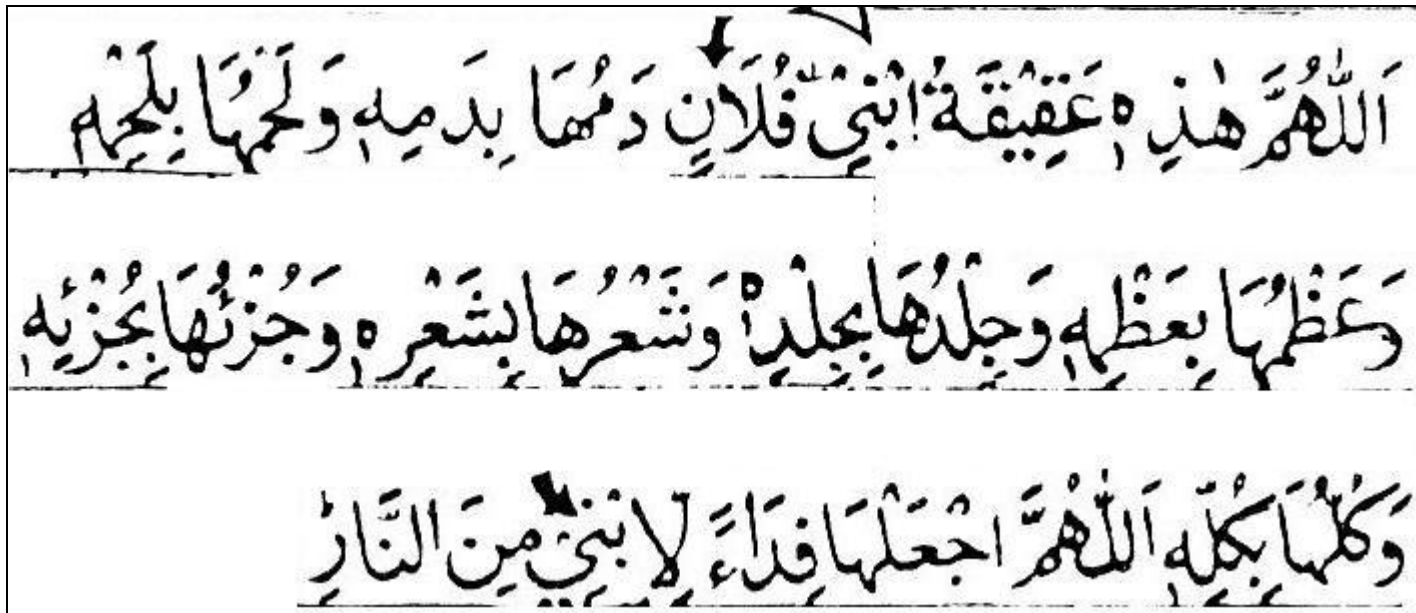 اَللّٰهُمَّ هٰذِهٖ عَقِيْقَةُ ابْنِيْ فُلَانٍ دَمُهَا بِدَمِهٖ وَلَحْمُهَا بِلَحْمِهٖ
وَعَظْمُهَا بِعَظْمِهٖ وَجِلْدُهَا بِجِلْدِهٖ وَشَعْرُهَا بِشَعْرِهٖ وَجُزْئُهَا بِجُزْئِهٖ
وَكُلُّهَا بِكُلِّهٖ اَللّٰهُمَّ اجْعَلْهَا فِدَاءً لِّابْنِيْ مِنَ النَّارِ